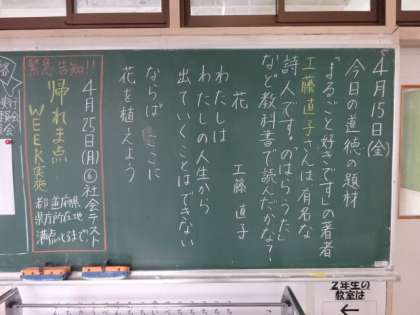 4月15日(金)
今日の道徳の題材
「まるごと好きです」の著者
工藤直子さんは有名な
詩人です。「のはらうた」
など教科書で読んだかな？
花　工藤 直子
わたしは
わたしの人生から
出ていくことはできない
ならば ここに
花を植えよう
緊急告知!!
4月25日(月)⑥社会テスト
帰れま点
WEEK実施
都道府県
県庁所在地
満点とるまで
2年生の
教室は
←